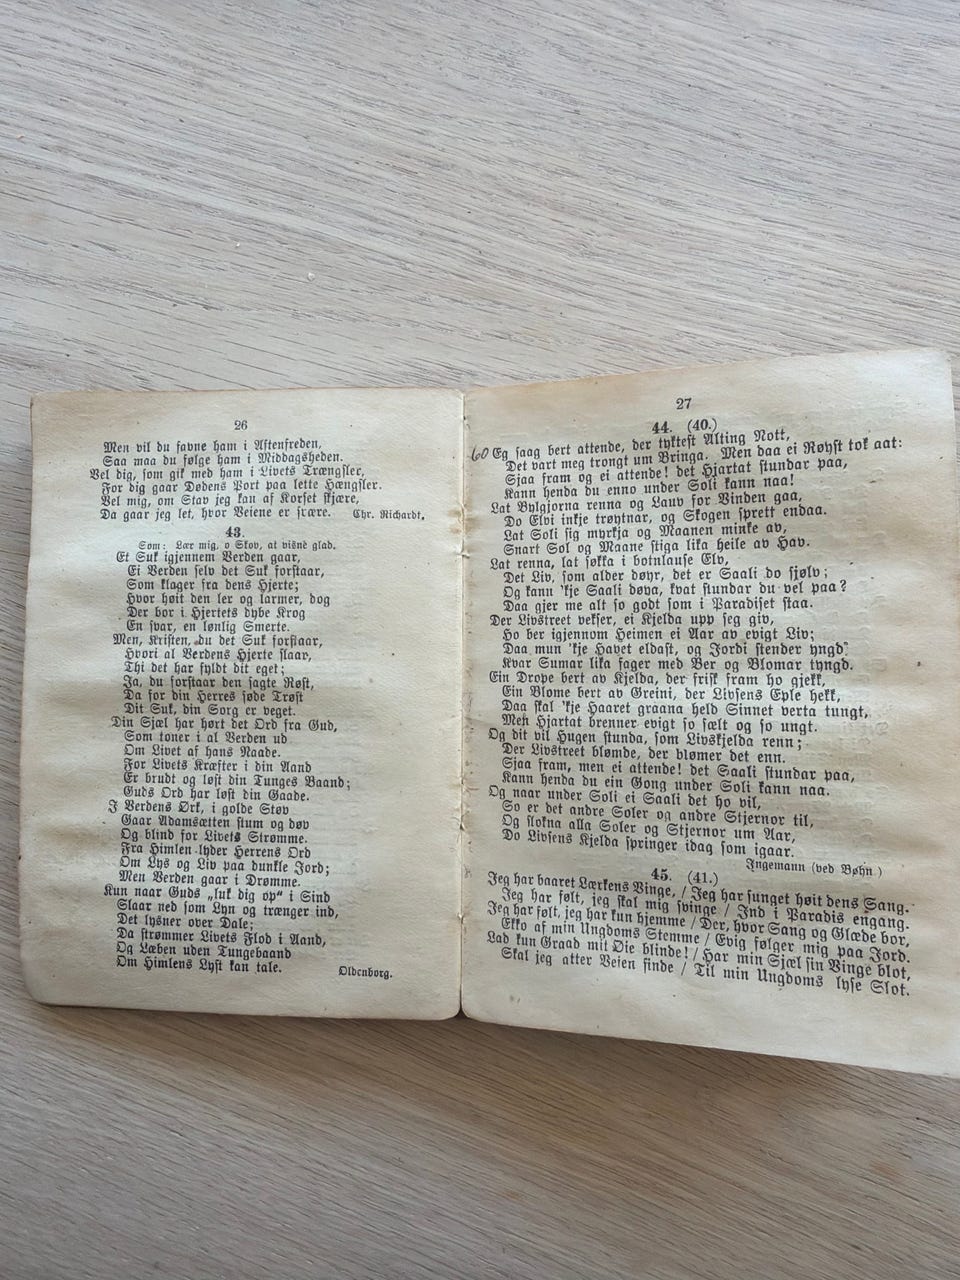 26
Men vil du favne ham i Aftenfreden,
Saa maa du følge ham i Middagsheden.
Vel dig, som gik med ham i Livets Trængsler,
For dig gaar Dødens Port paa lette Hængsler.
Vel mig, om Stav jeg kan af Korset skjære,
Da gaar jeg let, hvor Veiene er svære. Chr. Richardt.
43.
Som: Lær mig, o Skov, at visne glad.
Et Suk igjennem Verden gaar,
Ei Verden selv det Suk forstaar,
Som klager fra dens Hjerte;
Hvor høit den ler og larmer, dog
Der bor i Hjertets dybe Krog
En svar, en lønlig Smerte.
Men, Kristen, du det Suk forstaar,
Hvori al Verdens Hjerte slaar,
Thi det har fyldt dit eget;
Ja, du forstaar den sagte Røst,
Da for din Herres søde Trøst
Dit Suk, din Sorg er veget.
Din Sjæl har hørt det Ord fra Gud,
Som toner i al Verden ud
Om Livet af hans Naade.
For Livets Kræfter i din Aand
Er brudt og løst din Tunges Baand;
Guds Ord har løst din Gaade.
I Verdens Ørk, i golde Støv
Gaar Adamsætten stum og døv
Og blind for Livets Strømme.
Fra Himlen lyder Herrens Ord
Om Lys og Liv paa dunkle Jord;
Men Verden gaar i Drømme.
Kun naar Guds „luk dig op“ i Sind
Slaar ned som Lyn og trænger ind,
Det lysner over Dale;
Da strømmer Livets Flod i Aand,
Og Læben uden Tungebaand
Om Himlens Lyst kan tale.
Oldenborg.
27
44. (40.)
60 Eg saag bert attende, der tyktest Alting Nott,
Det vart meg trongt um Bringa. Men daa ei Røyst tok aat:
Sjaa fram og ei attende! det Hjartat stundar paa,
Kann henda du enno under Soli kann naa!
Lat Bylgjorna renna og Lauv for Vinden gaa,
Do Elvi inkje trøytnar, og Skogen sprett endaa.
Lat Soli sig myrkja og Maanen minke av,
Snart Sol og Maane stiga lika heile av Hav.
Lat renna, lat søkka i botnlause Elv,
Det Liv, som alder døyr, det er Saali do sjølv;
Og kann 'kje Saali døya, kvat stundar du vel paa?
Daa gjer me alt so godt som i Paradiset staa.
Der Livstreet vekser, ei Kjelda upp seg giv,
Ho ber igjennom Heimen ei Aar av evigt Liv;
Daa mun 'kje Havet eldast, og Jordi stender yngd.
Kvar Sumar lika fager med Ber og Blomar tyngd.
Ein Drope bert av Kjelda, der frisk fram ho gjekk,
Ein Blome bert av Greini, der Livsens Eple hekk,
Daa skal 'kje Haaret graana held Sinnet verta tungt,
Men Hjartat brenner evigt so sælt og so ungt.
Og dit vil Hugen stunda, som Livskjelda renn;
Der Livstreet blømde, der blømer det enn.
Sjaa fram, men ei attende! det Saali stundar paa,
Kann henda du ein Gong under Soli kann naa.
Og naar under Soli ei Saali det ho vil,
So er det andre Soler og andre Stjernor til,
Og slokna alla Soler og Stjernor um Aar,
Do Livsens Kjelda springer idag som igaar.
Ingemann (ved Bøhn.)
45. (41.)
Jeg har baaret Lærkens Vinge, / Jeg har sunget høit dens Sang.
Jeg har følt, jeg skal mig svinge / Ind i Paradis engang.
Jeg har følt, jeg har kun hjemme / Der, hvor Sang og Glæde bor,
Ekko af min Ungdoms Stemme / Evig følger mig paa Jord.
Lad kun Graad mit Øie blinde! / Har min Sjæl sin Vinge blot,
Skal jeg atter Veien finde / Til min Ungdoms lyse Slot.